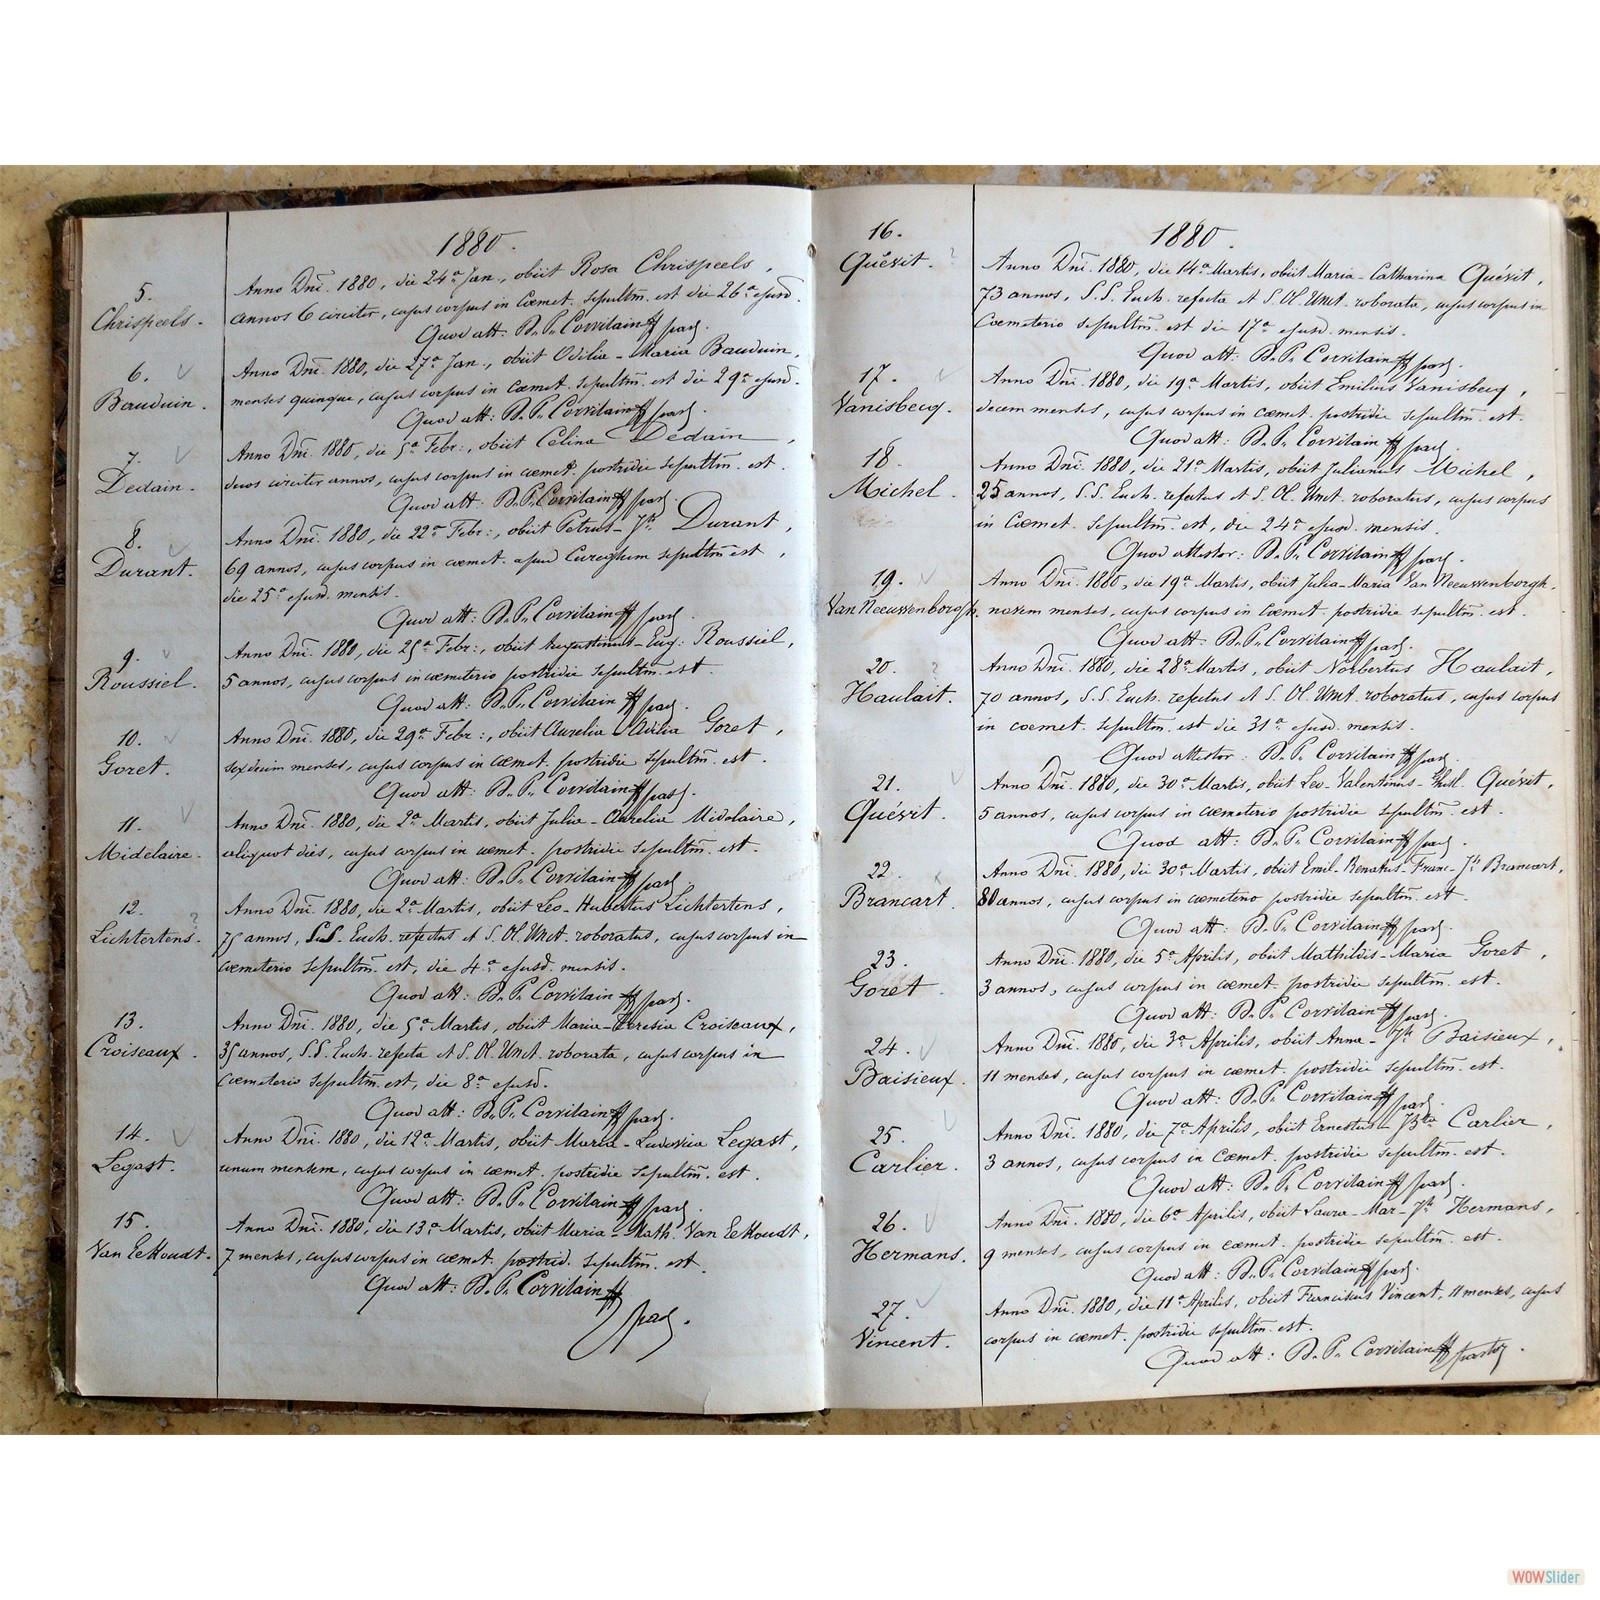 1880.
5.
Chrispeels.
Anno Dni. 1880, die 24a Jan., obiit Rosa Chrispeels,
annos 6 circiter, cujus corpus in Cœmet. sepultm. est die 26a ejusd.
Quod att: D. P. Corvilain past.
6.
Bauduin.
Anno Dni. 1880, die 27a Jan., obiit Odilia-Maria Bauduin,
menses quinque, cujus corpus in cœmet. sepultm. est die 29a ejusd.
Quod att: D. P. Corvilain past.
7.
Dedain.
Anno Dni. 1880, die 5a Febr:, obiit Celina Dedain,
duos circiter annos, cujus corpus in cœmet. postridie sepultm. est.
Quod att: D. P. Corvilain past.
8.
Durant.
Anno Dni. 1880, die 22a Febr:, obiit Petrus-Jh. Durant,
69 annos, cujus corpus in cœmet. apud sepultm est,
die 25a ejusd. mensis.
Quod att: D. P. Corvilain past.
9.
Roussiel.
Anno Dni. 1880, die 25a Febr:, obiit Augustinus-Eug: Roussiel,
5 annos, cujus corpus in cœmeterio postridie sepultm. est.
Quod att: D. P. Corvilain past.
10.
Goret.
Anno Dni. 1880, die 29a Febr:, obiit Aurelia Goret,
sexdecim menses, cujus corpus in cœmet. postridie sepultm. est.
Quod att: D. P. Corvilain past.
11.
Midelaire.
Anno Dni. 1880, die 2a Martis, obiit Julia-Aurelia Midelaire,
aliquot dies, cujus corpus in cœmet. postridie sepultm. est.
Quod att: D. P. Corvilain past.
12. ?
Lichtertens.
Anno Dni. 1880, die 2a Martis, obiit Leo-Hubertus Lichtertens,
75 annos, S.S. Euch. refectus et S. Ol. Unct. roboratus, cujus corpus in
cœmeterio sepultm. est, die 4a ejusd. mensis.
Quod att: D. P. Corvilain past.
13.
Croiseaux.
Anno Dni. 1880, die 5a Martis, obiit Maria-Teresia Croiseaux,
35 annos, S.S. Euch. refecta et S. Ol. Unct. roborata, cujus corpus in
Cœmeterio sepultm. est, die 8a ejusd.
Quod att: D. P. Corvilain past.
14.
Legast.
Anno Dni. 1880, die 12a Martis, obiit Maria-Ludovica Legast,
unum mensem, cujus corpus in cœmet. postridie sepultm. est.
Quod att: D. P. Corvilain past.
15.
Van Eekoudt.
Anno Dni. 1880, die 13a Martis, obiit Maria-Math. Van Eekoudt,
7 menses, cujus corpus in cœmet. postrid. sepultm. est.
Quod att: D. P. Corvilain
past.
1880.
16.
Quévit. ?
Anno Dni. 1880, die 14a Martis, obiit Maria-Catharina Quévit,
73 annos, S.S. Euch. refecta et S. Ol. Unct. roborata, cujus corpus in
Cœmeterio sepultm. est die 17a ejusd. mensis.
Quod att: D. P. Corvilain past.
17.
Vanisbecq.
Anno Dni. 1880, die 19a Martis, obiit Emilius Vanisbecq,
decem menses, cujus corpus in cœmet. postridie sepultm. est.
Quod att: D. P. Corvilain past.
18.
Michel.
Anno Dni. 1880, die 21a Martis, obiit Julianus Michel,
25 annos, S.S. Euch. refectus et S. Ol. Unct. roboratus, cujus corpus
in Cœmet. sepultm. est, die 24a ejusd. mensis.
Quod attestor: D. P. Corvilain past.
19.
Van Neeuwenborgh.
Anno Dni. 1880, die 19a Martis, obiit Julia-Maria Van Neeuwenborgh,
novem menses, cujus corpus in cœmet. postridie sepultm. est.
Quod att: D. P. Corvilain past.
20. ?
Haulait.
Anno Dni. 1880, die 28a Martis, obiit Norbertus Haulait,
70 annos, S.S. Euch. refectus et S. Ol. Unct. roboratus, cujus corpus
in cœmet. sepultm. est die 31a ejusd. mensis.
Quod attestor: D. P. Corvilain past.
21.
Quévit.
Anno Dni. 1880, die 30a Martis, obiit Leo-Valentinus-Ghisl. Quévit,
5 annos, cujus corpus in cœmeterio postridie sepultm. est.
Quod att: D. P. Corvilain past.
22.
Brancart.
Anno Dni. 1880, die 30a Martis, obiit Emil-Renatus-Franc-Jh Brancart,
80 annos, cujus corpus in cœmeterio postridie sepultm. est.
Quod att: D. P. Corvilain past.
23.
Goret.
Anno Dni. 1880, die 5a Aprilis, obiit Mathildis-Maria Goret,
3 annos, cujus corpus in cœmet. postridie sepultm. est.
Quod att: D. P. Corvilain past.
24.
Baisieux.
Anno Dni. 1880, die 3a Aprilis, obiit Anna-Jh Baisieux,
11 menses, cujus corpus in cœmet. postridie sepultm. est.
Quod att: D. P. Corvilain past.
25.
Carlier.
Anno Dni. 1880, die 7a Aprilis, obiit Ernestus-Jbta Carlier,
3 annos, cujus corpus in Cœmet. postridie sepultm. est.
Quod att: D. P. Corvilain past.
26.
Hermans.
Anno Dni. 1880, die 6a Aprilis, obiit Laura-Mar-Jh Hermans,
9 menses, cujus corpus in cœmet. postridie sepultm. est.
Quod att: D. P. Corvilain past.
27.
Vincent.
Anno Dni. 1880, die 11a Aprilis, obiit Franciscus Vincent, 11 menses, cujus
corpus in cœmet. postridie sepultm. est.
Quod att: D. P. Corvilain pastor.
WOWSlider